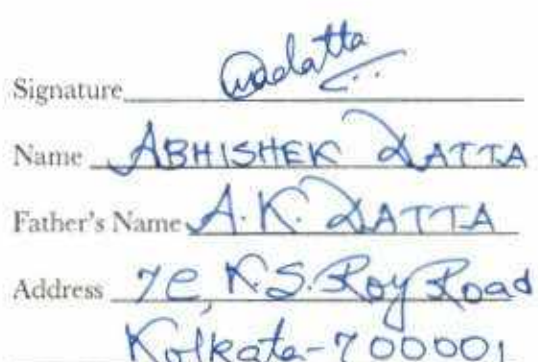 Signature
Name ABHISHEK DATTA
Father's Name A.K. DATTA
Address 7C, K.S. Roy Road
Kolkata-700001